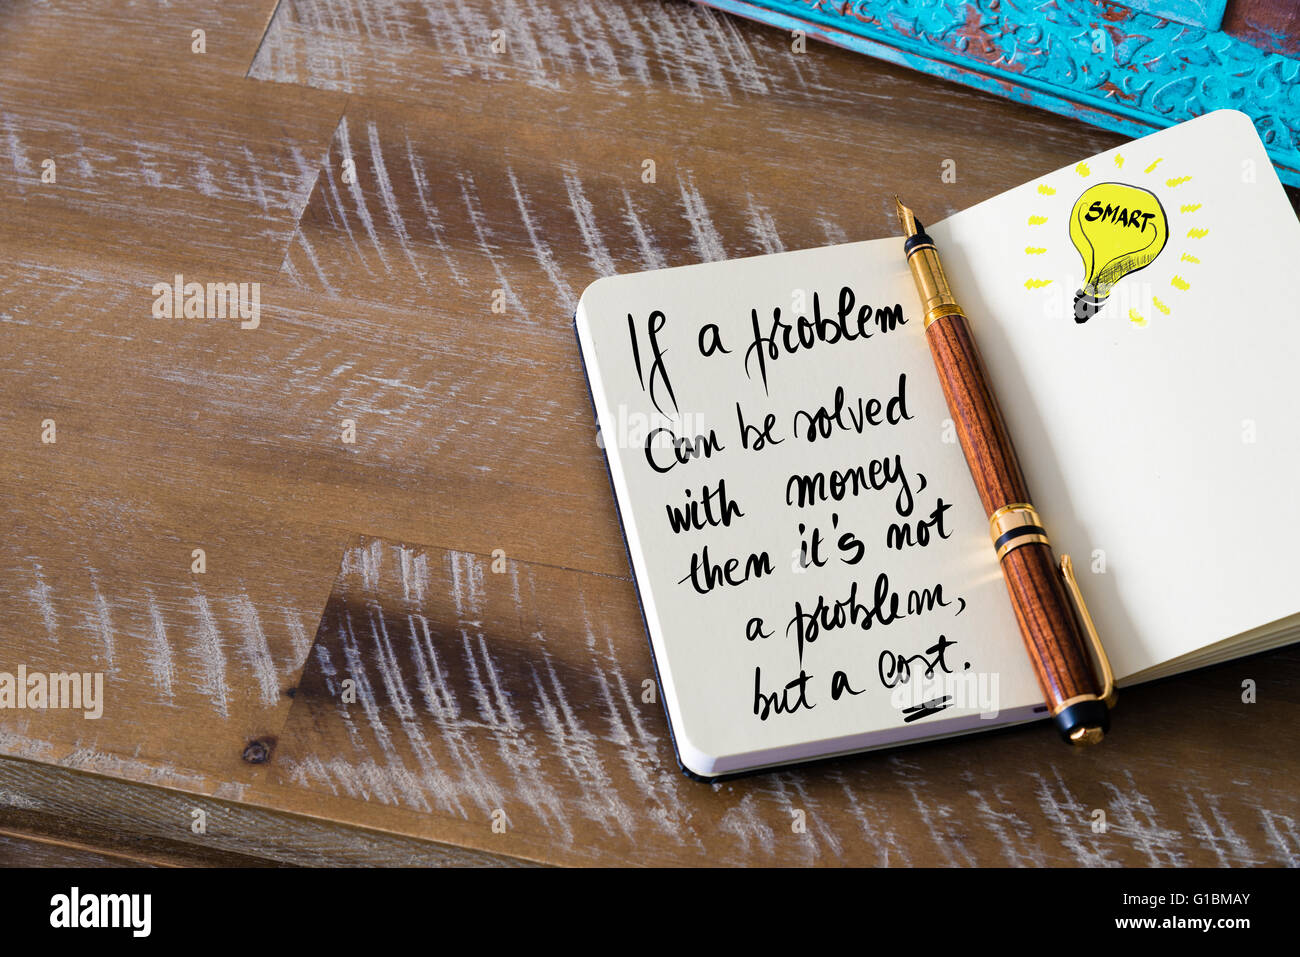 If a problem
can be solved
with money,
then it's not
a problem,
but a cost.
SMART
alamy
Image ID: G1BMAY
www.alamy.com